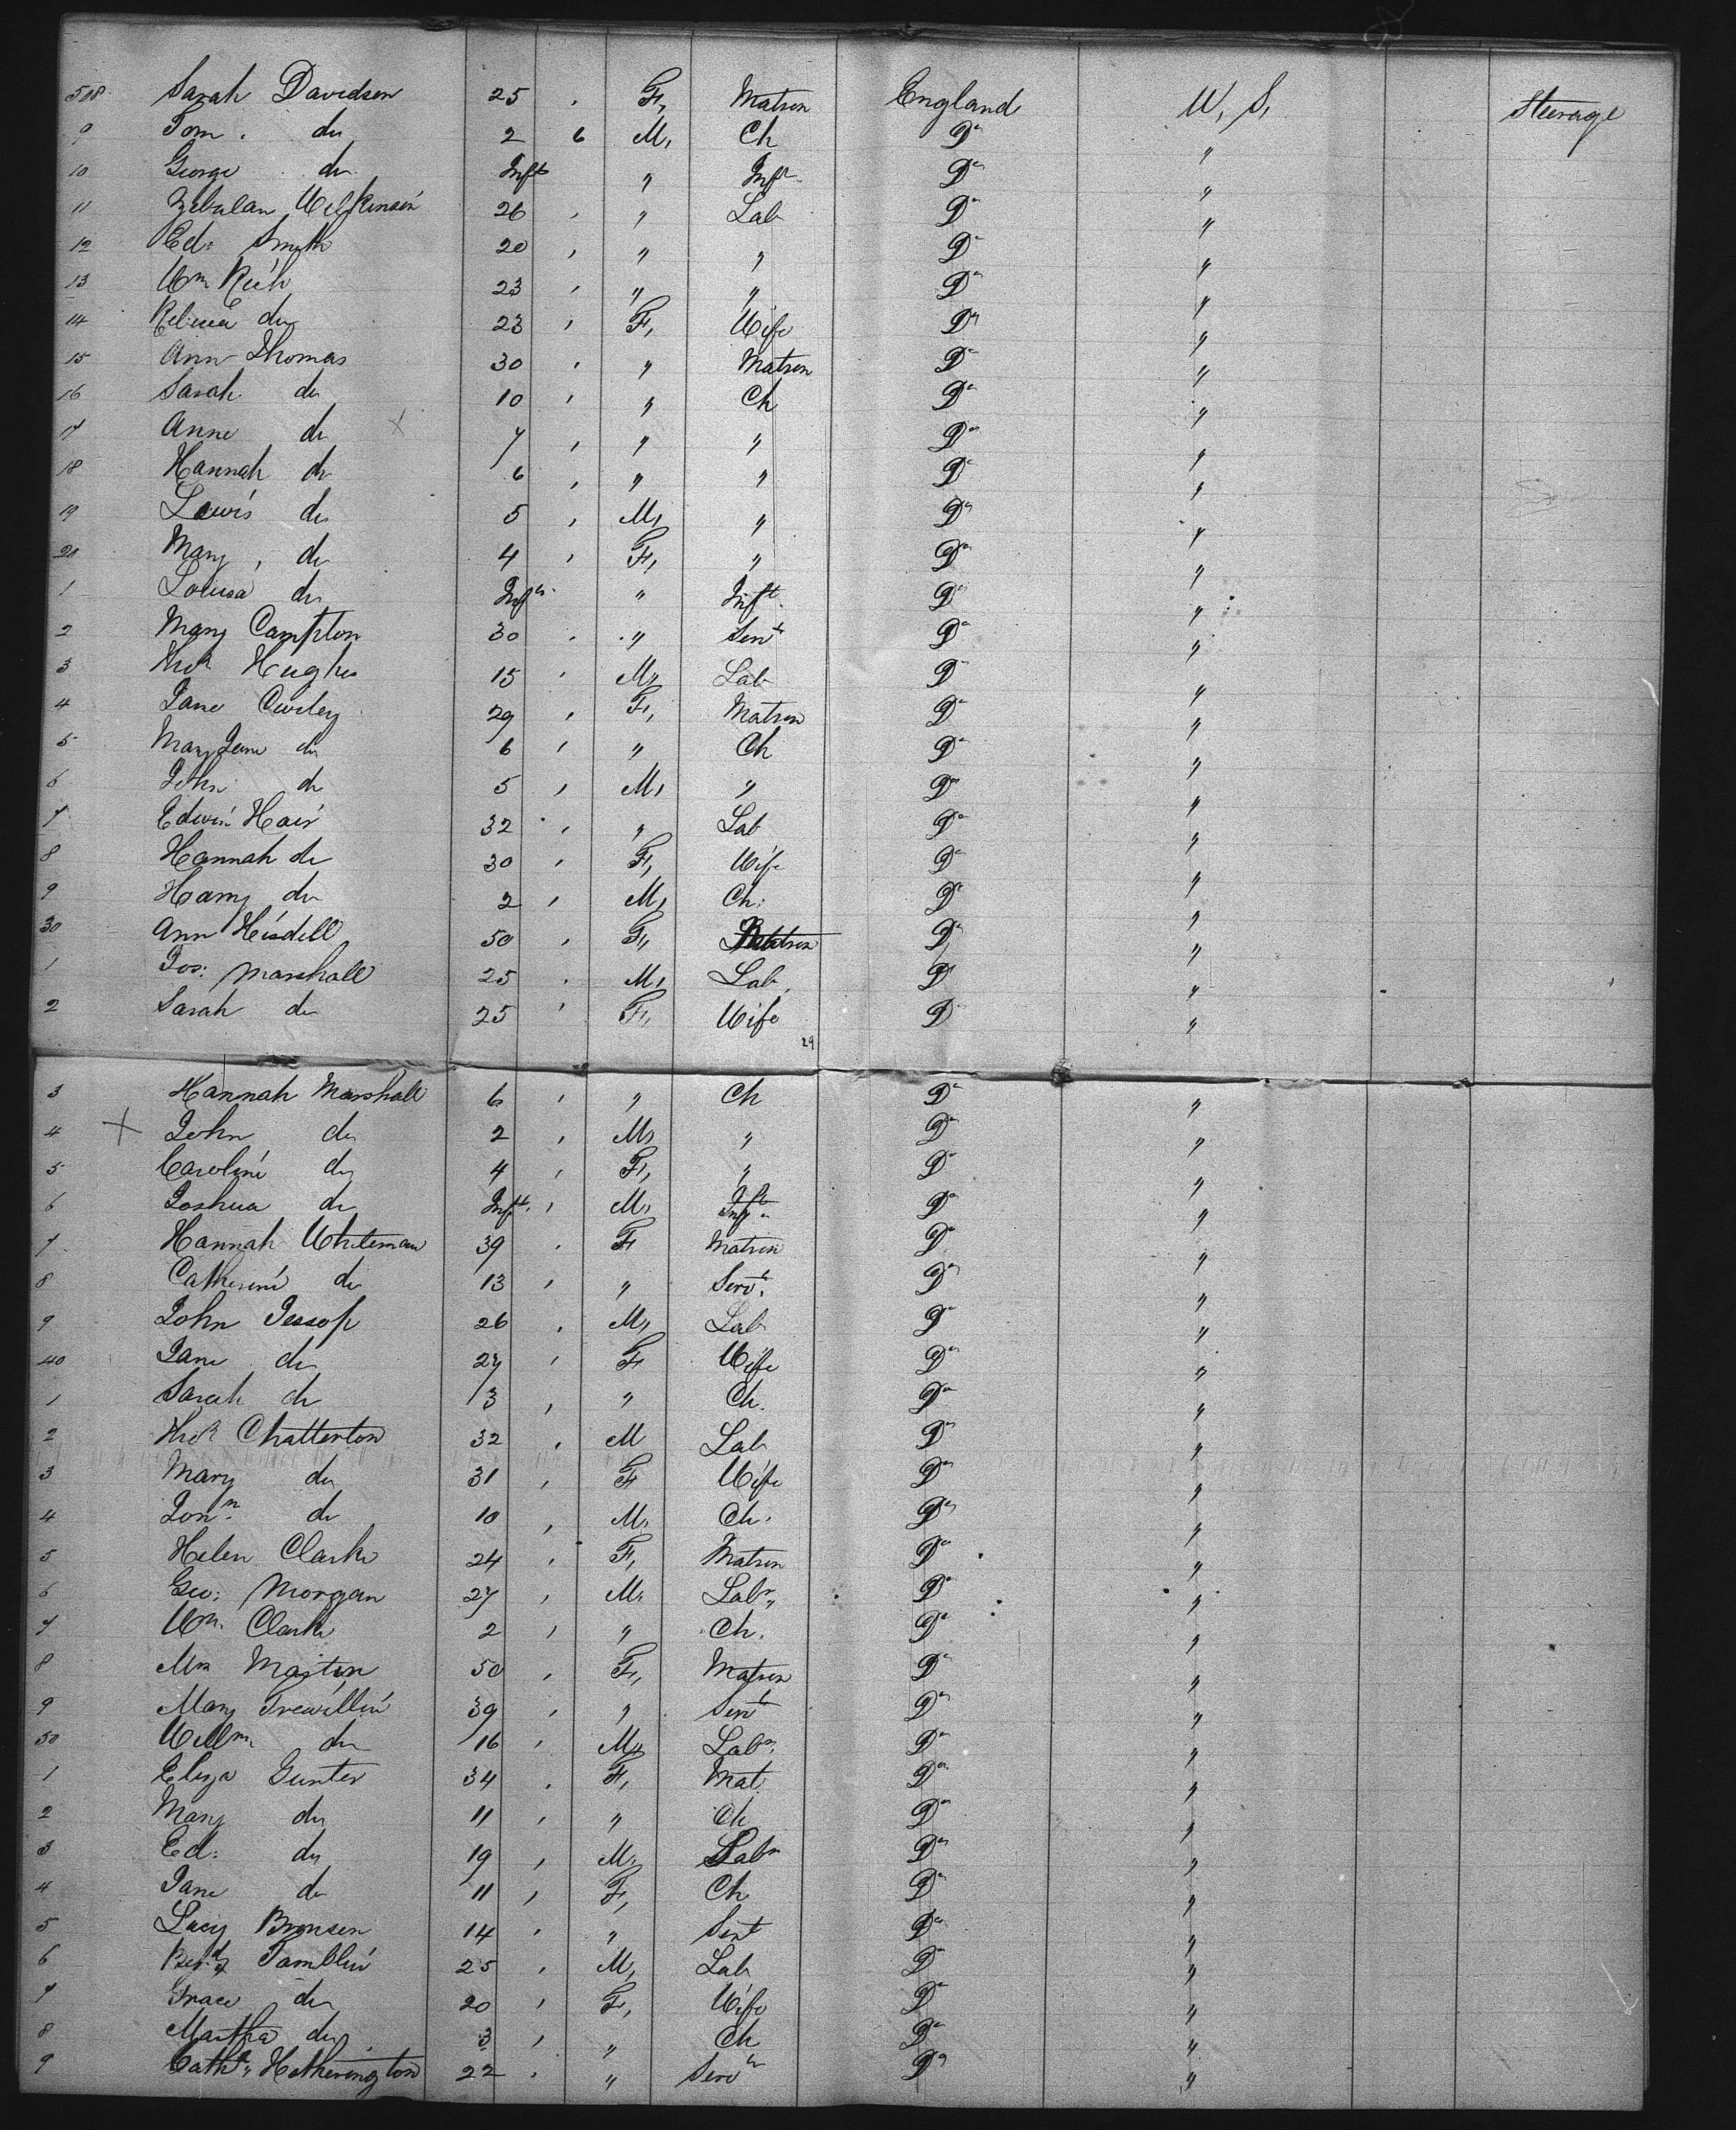 508 Sarah Davidson 25 , F, Matron England U, S, Steerage
9 Tom . do 2 6 M, Ch Do "
10 George do Inft " Inft Do "
11 Zebulan Wilkinson 26 , " Lab Do "
12 Ed: Smyth 20 , " " Do "
13 Wm Rich 23 , " " Do "
14 Rebecca do 23 , F, Wife Do "
15 Ann Thomas 30 , " Matron Do "
16 Sarah do 10 , " Ch Do "
17 Anne do X 7 , " " Do "
18 Hannah do 6 , " " Do "
19 Lewis do 5 , M, " Do "
20 Mary , do 4 , F, " Do "
1 Louisa do Inft " Inft Do "
2 Mary Campton 30 . " Sert Do "
3 Thos Hughes 15 , M, Lab Do "
4 Jane Curley 29 , F, Matron Do "
5 Mary Jane do 6 , " Ch Do "
6 John do 5 , M, " Do "
7 Edwin Hair 32 , " Lab Do "
8 Hannah do 30 , F, Wife Do "
9 Harry do 2 , M, Ch: Do "
30 Ann Heisdell 50 , F, Matron Do "
1 Jos: Marshall 25 . M, Lab, Do "
2 Sarah do 25 , F, Wife Do "
29
3 Hannah Marshall 6 , " Ch Do "
4 X John do 2 , M, " Do "
5 Caroline do 4 , F, " Do "
6 Joshua do Inft , M, Inft Do "
7 Hannah Whiteman 39 . F Matron Do "
8 Catherine do 13 , " Servt. Do "
9 John Jessop 26 , M, Lab Do "
40 Jane do 27 , F Wife Do "
1 Sarah do 3 , " Ch. Do "
2 Thos Chatterton 32 , M Lab Do "
3 Mary do 31 , F Wife Do "
4 Jonn do 10 , M, Ch. Do "
5 Helen Clarke 24 , F, Matron Do "
6 Geo: Morgan 27 , M, Labr " Do "
7 Wm. Clarke 2 , " Ch. Do "
8 Mrs Martin 50 , F, Matron Do "
9 Mary Trewillin 39 , " Sert Do "
50 Willm do 16 , M, Labr. Do "
1 Eliza Gunter 34 , F, Mat Do "
2 Mary do 11 , " Ch Do "
3 Ed: do 19 , M, Labr Do "
4 Jane do 11 , F, Ch Do "
5 Lucy Bronson 14 , " Sert Do "
6 Tamblin 25 , M, Lab Do "
7 Grace do 20 , F, Wife Do "
8 Martha do 3 , " Ch Do "
9 Cathe " Hetherington 22 , " Servt Do "